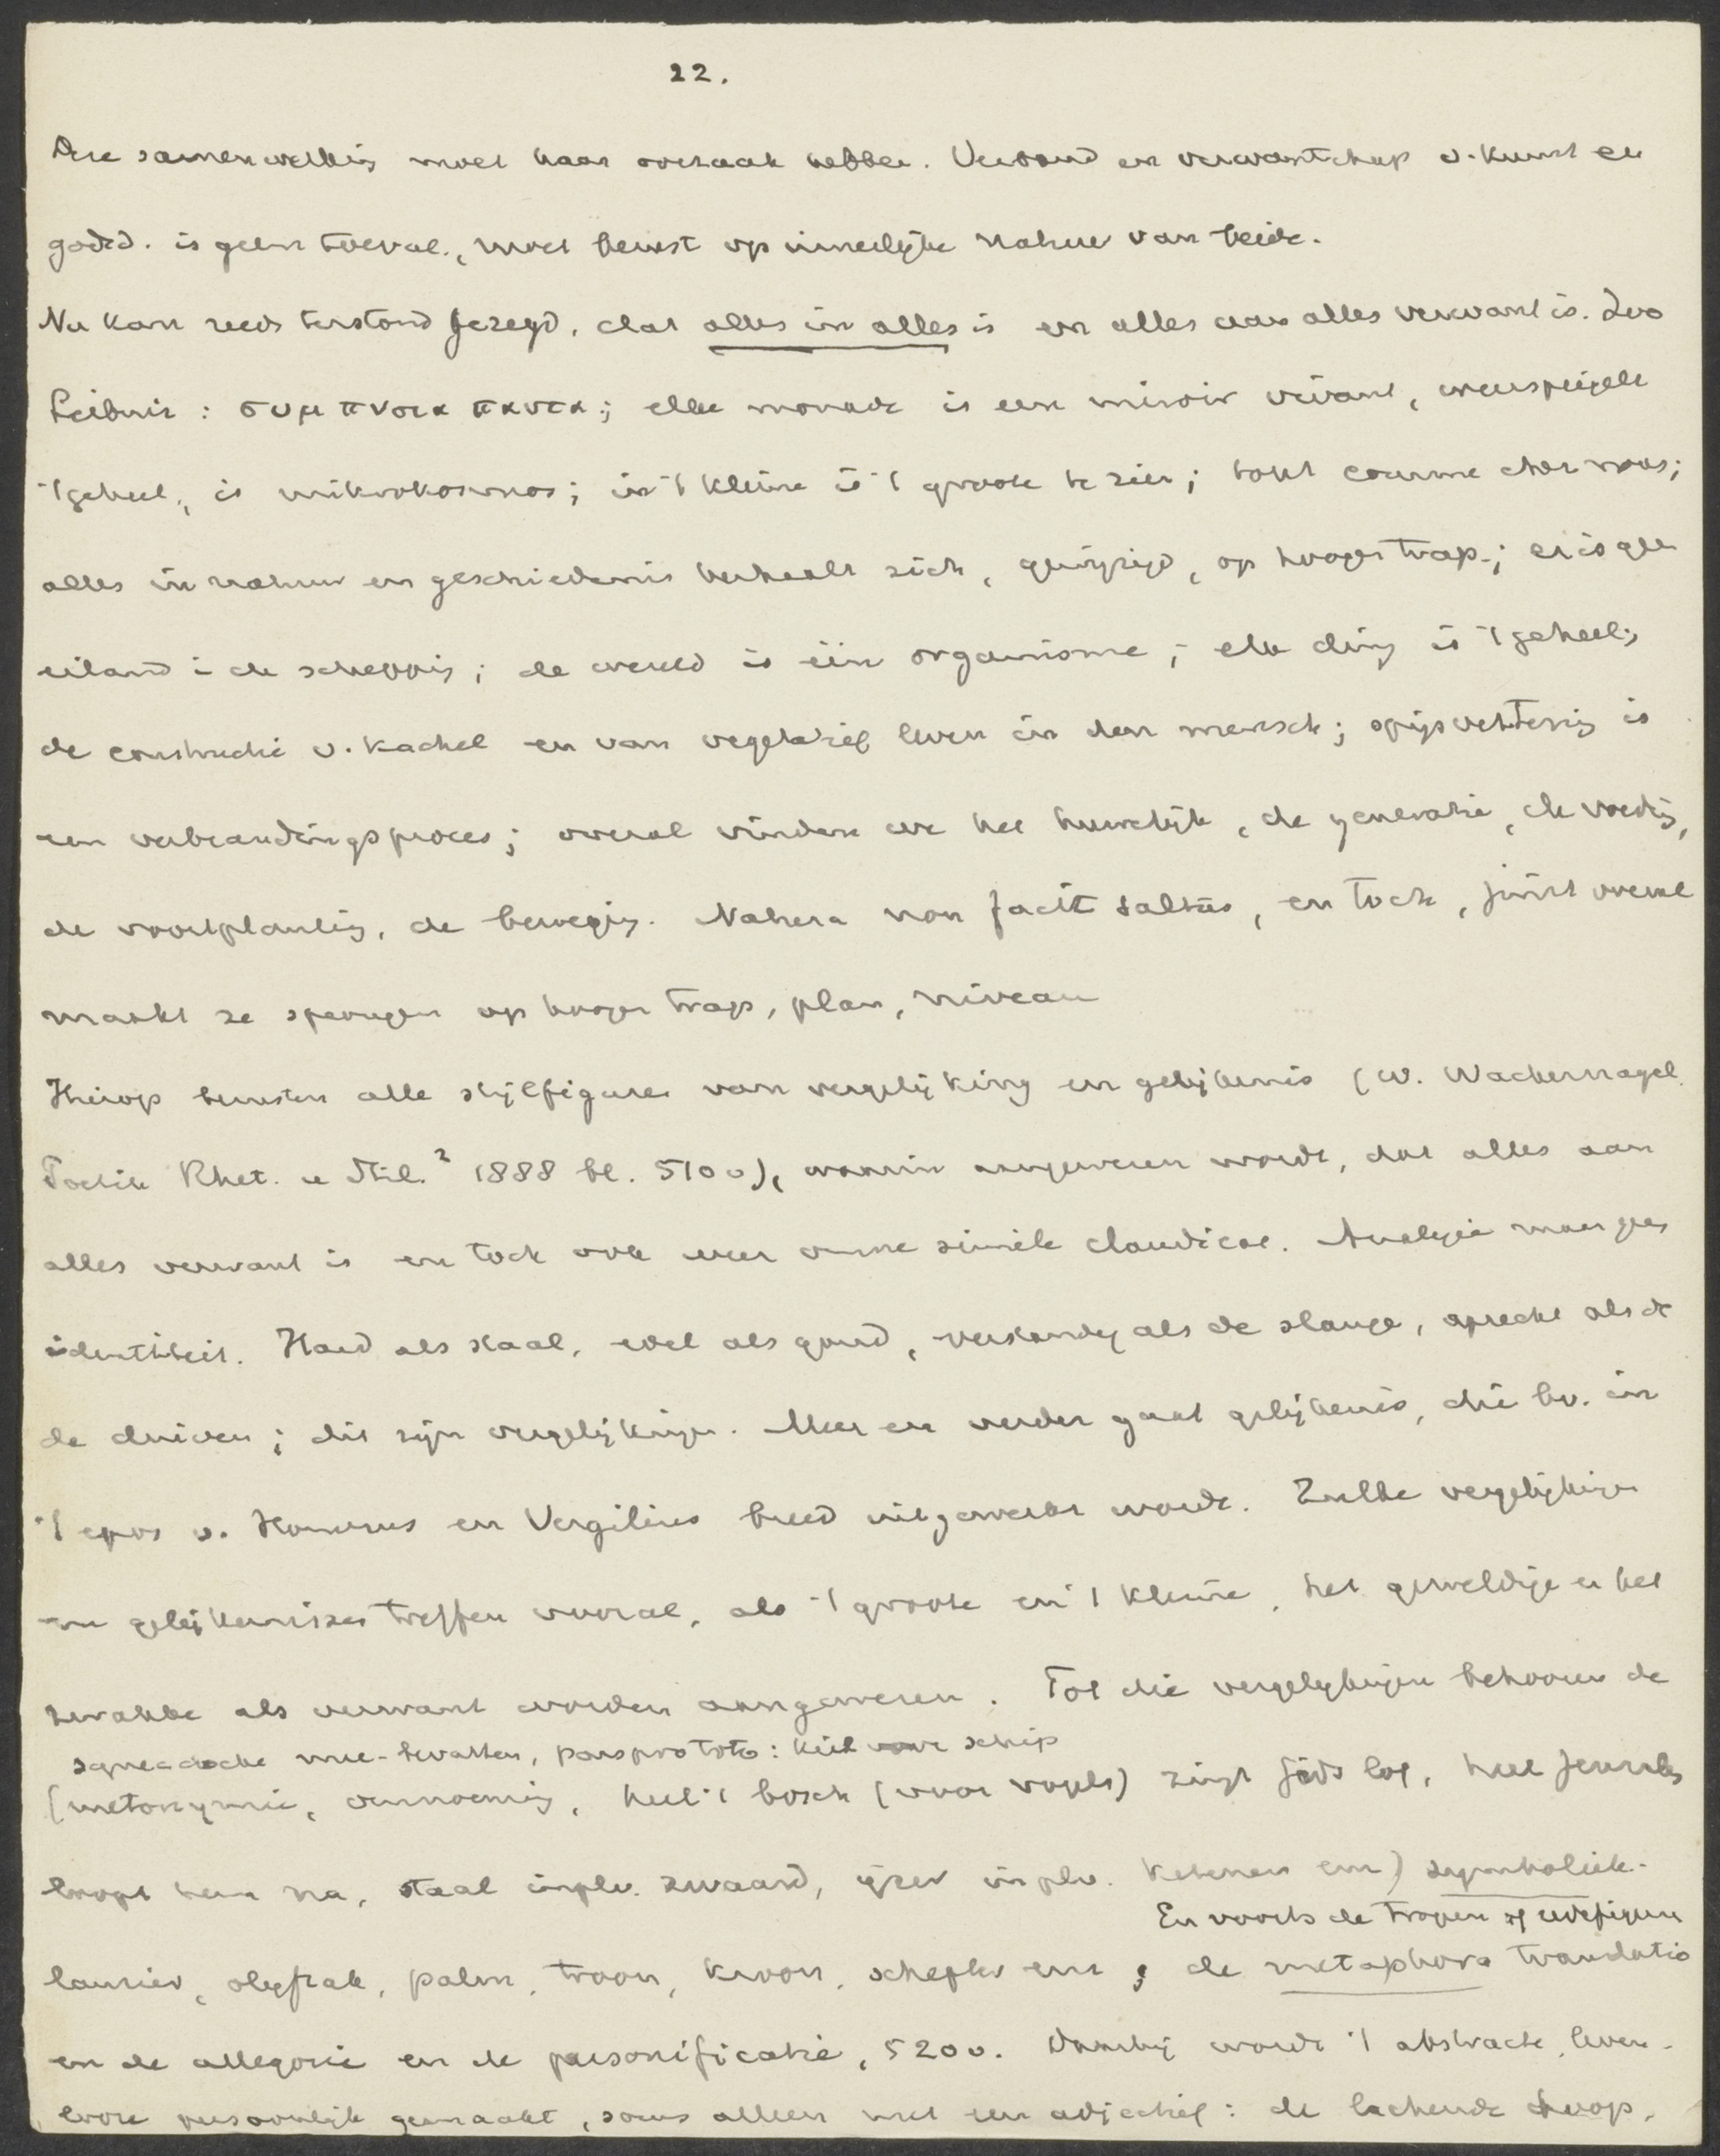 22.
Deze samenwerking moet haar oorzaak hebben. Verband en verwantschap v. kunst en
godsd. is geen toeval, moet berust op innerlijke natuur van beide.
Nu kan reeds terstond gezegd, dat alles in alles is en alles aan alles verwant is. Zoo
Leibniz: συμπνοια παντα; elke monade is een miroir vivant, weerspiegelt
't geheel, is mikrokosmos; in 't kleine is 't groote te zien; tout comme chez nous;
alles in natuur en geschiedenis herhaalt zich, gewijzigd, op hooger trap; er is geen
eiland i de schepping; de wereld is één organisme; elk ding is 't geheel;
de constructie v. kachel en van vegetatief leven in den mensch; spijsvertering is
een verbrandingsproces; overal vinden we het huwelijk, de generatie, de voeding,
de voortplanting, de beweging. Natura non facit saltus, en toch, juist overal
maakt ze sprongen op hooger trap, plan, niveau
Hierop berusten alle stijlfiguren van vergelijking en gelijkenis (W. Wackernagel
Poetik Rhet. u Stil.² 1888 bl. 510v), waarin aangewezen wordt, dat alles aan
alles verwant is en toch ook weer omne simile claudicat. Analogie maar geen
identiteit. Hard als staal, edel als goud, verstandig als de slange, oprecht als de
de duiven; dit zijn vergelijkingen. Meer en verder gaat gelijkenis, die bv. in
't epos v. Homerus en Vergilius breed uitgewerkt wordt. Zulke vergelijkingen
en gelijkenissen treffen vooral, als 't groote en 't kleine, het geweldige en het
zwakke als verwant worden aangewezen. Tot die vergelijkingen behooren de
synecdoche mee-bevatten, pars pro toto: kiel voor schip
(metonymie, vernoeming, heel 't bosch (voor vogels) zingt Gods lof, heel Jeruzalem
loopt hem na, staal inplv. zwaard, ijzer inplv. ketenen enz) symboliek.
En voorts de tropen of redefiguren
laurier, olijftak, palm, troon, kroon, schepter enz; de metaphora translatio
en de allegorie en de personificatie, 520v. Daarbij wordt 't abstracte, leven-
looze persoonlijk gemaakt, soms alleen met een adjectief: de lachende hoop,